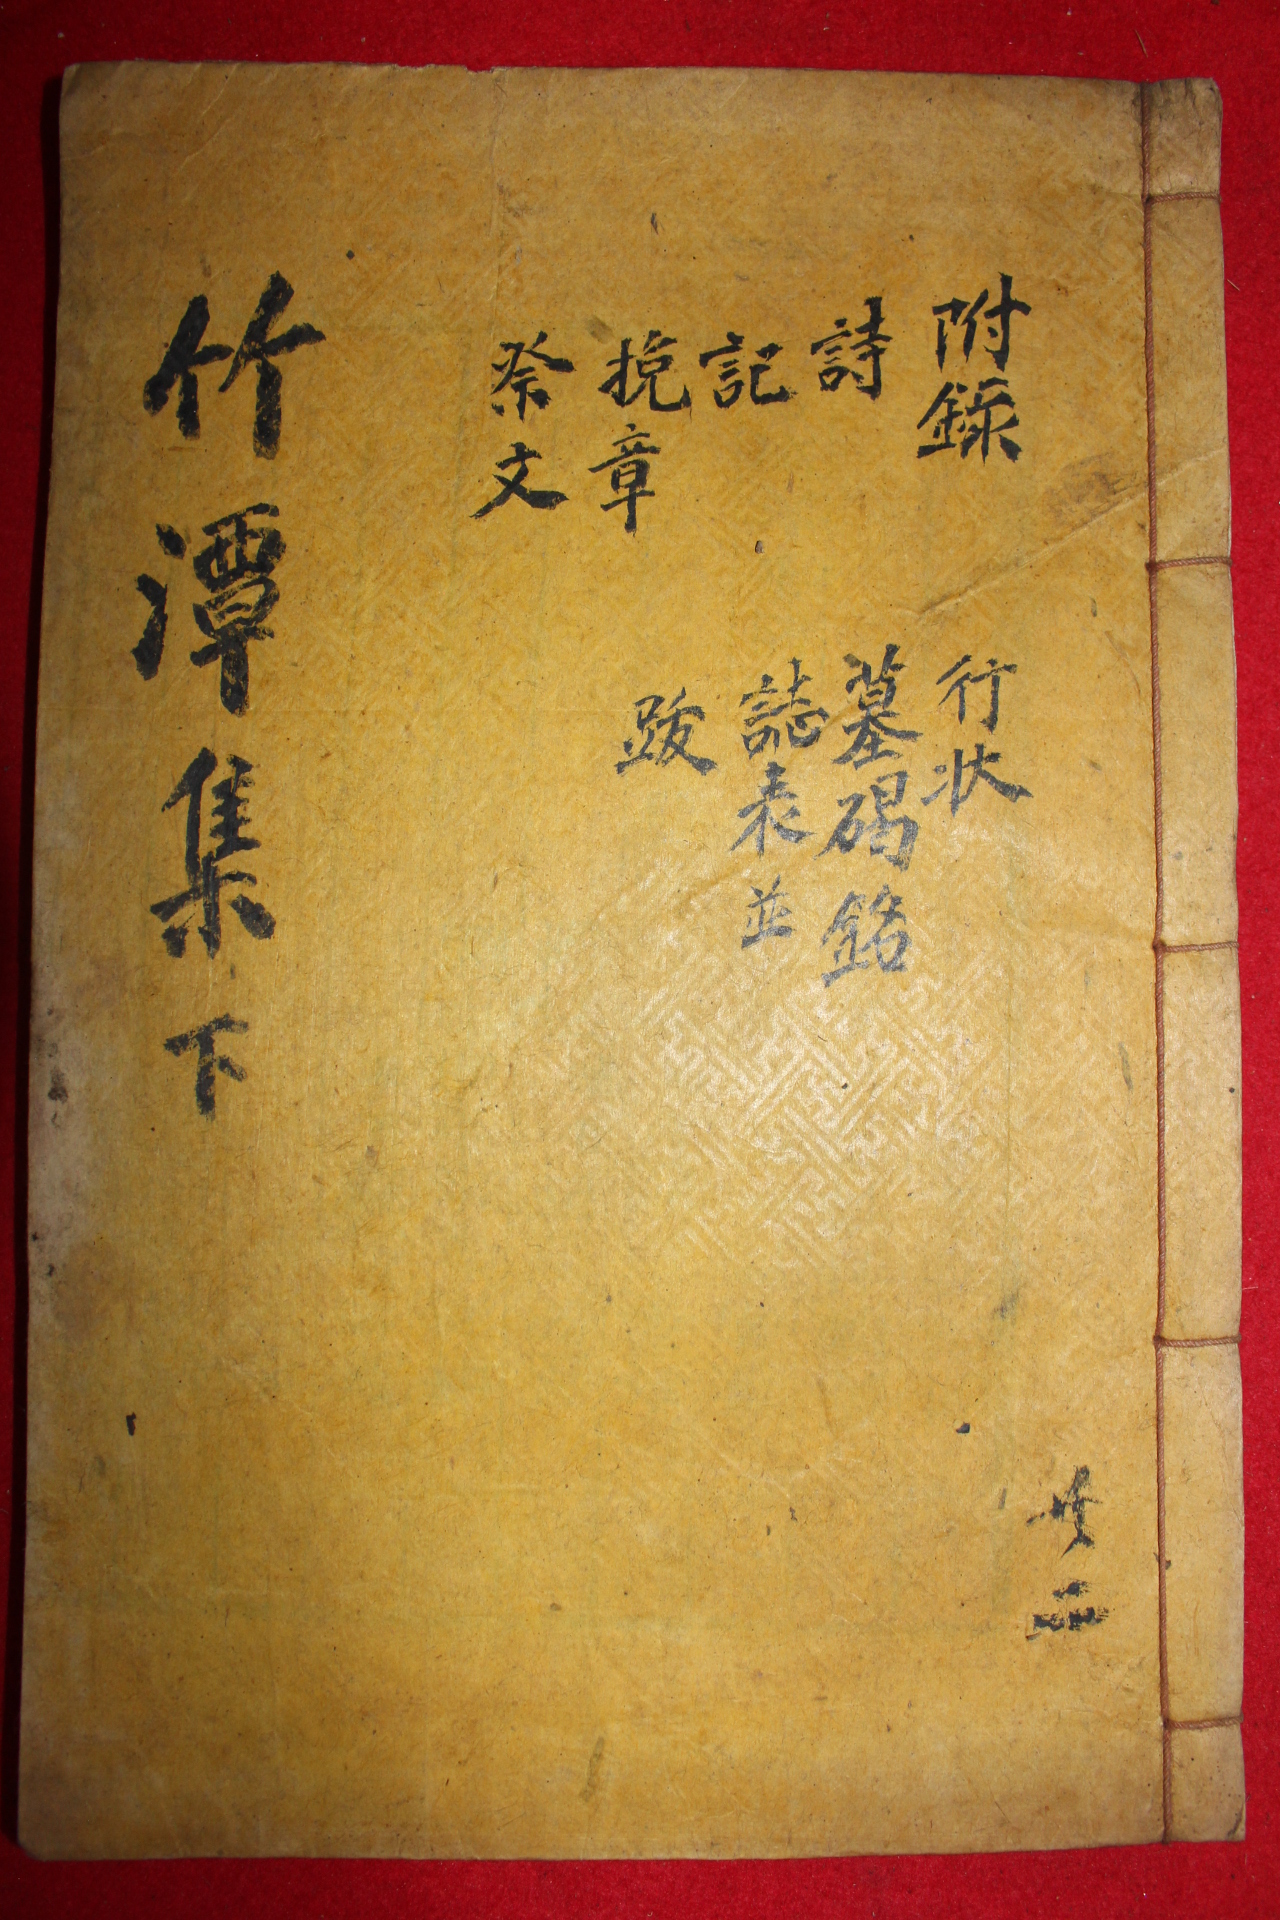 附錄
詩
記
挽章
祭文
行狀
墓碣銘
誌表並
跋
竹潭集下
共二